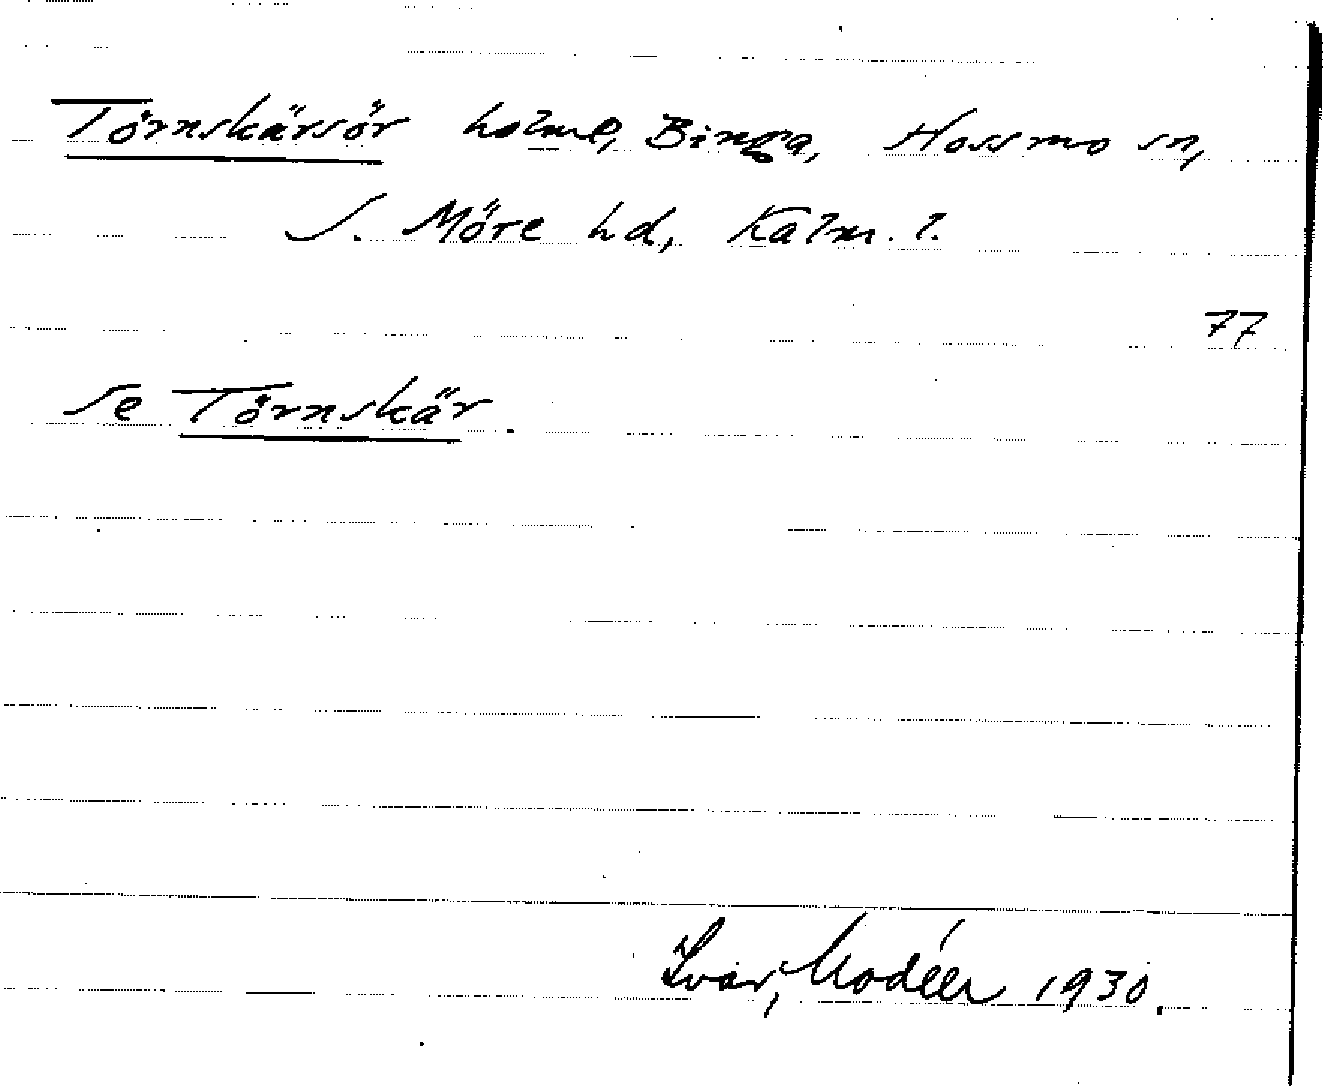 Törnskärsör holme, Binga, Hossmo sn,
S. Möre hd, Kalm. l.
77
Se Törnskär.
Ivar Modéer 1930.